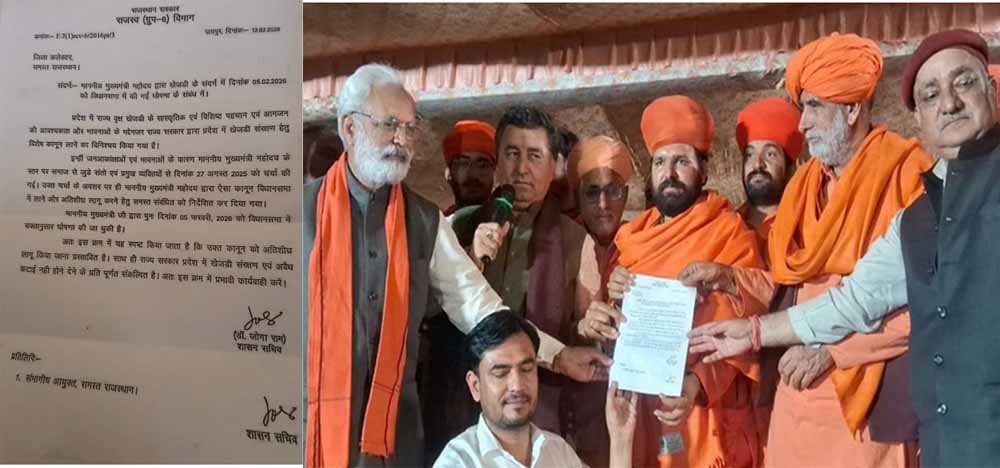 राजस्थान सरकार
राजस्व (ग्रुप–6) विभाग
क्रमांकः- F.3(1)rev-6/2016pt/1
जयपुर, दिनांकः- 12.02.2026
जिला कलेक्टर,
समस्त राजस्थान।
संदर्भः- माननीय मुख्यमंत्री महोदय द्वारा खेजडी के संदर्भ में दिनांक 05.02.2026
को विधानसभा में की गई घोषणा के संबंध में।
प्रदेश में राज्य वृक्ष खेजडी के सांस्कृतिक एवं विशिष्ठ पहचान एवं आमजन
की आवश्यकता और भावनाओं के मद्देनजर राज्य सरकार द्वारा प्रदेश में खेजडी संरक्षण हेतु
विशेष कानून लाने का विनिश्चय किया गया है।
इन्हीं जनआकांक्षाओं एवं भावनाओं के कारण माननीय मुख्यमंत्री महोदय के
स्तर पर समाज से जुडे संतो एवं प्रमुख व्यक्तियों से दिनांक 27 अगस्त 2025 को चर्चा की
गई। उक्त चर्चा के अवसर पर ही माननीय मुख्यमंत्री महोदय द्वारा ऐसा कानून विधानसभा
में लाने और अतिशीघ्र लागू करने हेतु समस्त संबंधित को निर्देशित कर दिया गया।
माननीय मुख्यमंत्री जी द्वारा पुनः दिनांक 05 फरवरी, 2026 को विधानसभा में
उक्तानुसार घोषणा की जा चुकी है।
अतः इस क्रम में यह स्पष्ट किया जाता है कि उक्त कानून को अतिशीघ्र
लागू किया जाना प्रस्तावित है। साथ ही राज्य सरकार प्रदेश में खेजडी संरक्षण एवं अवैध
कटाई नही होने देने के प्रति पूर्णत संकल्पित है। अतः इस क्रम में प्रभावी कार्यवाही करें।
(डॉ. जोगा राम)
शासन सचिव
प्रतिलिपिः-
1. संभागीय आयुक्त, समस्त राजस्थान।
शासन सचिव